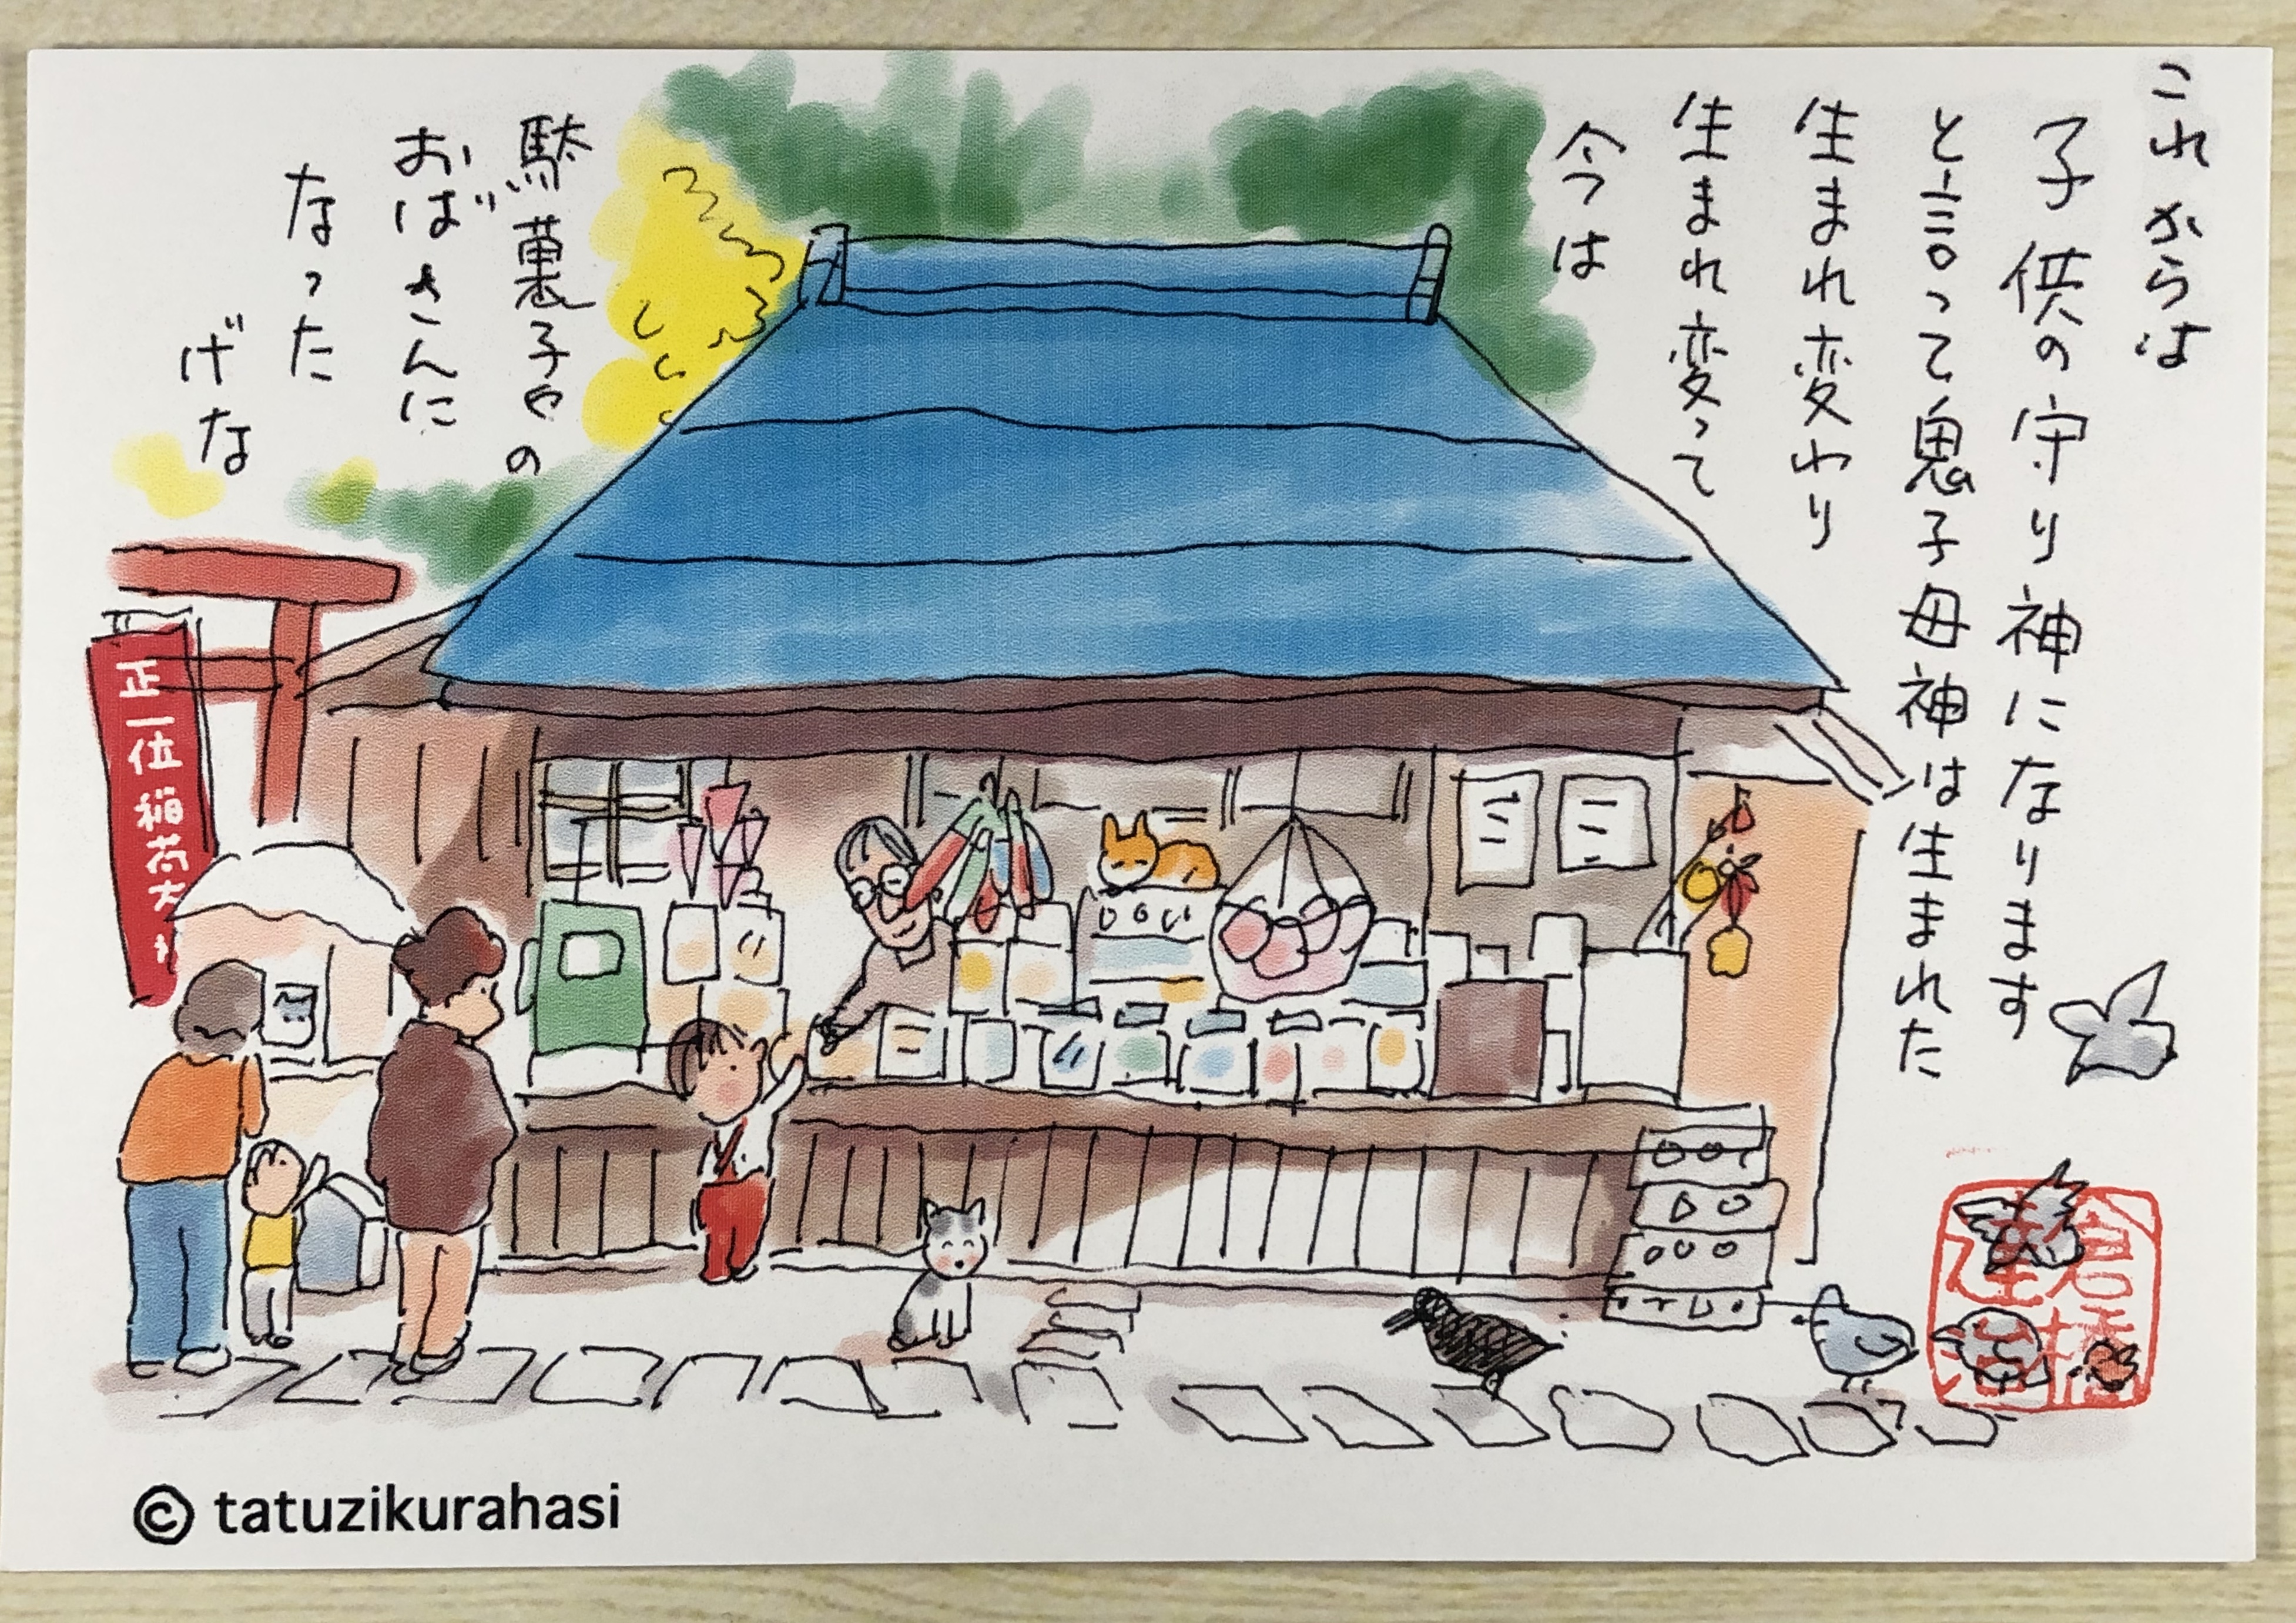 これからは
子供の守り神になります
と言って鬼子母神は生まれた
生まれ変わり
生まれ変って
今は
駄菓子やの
おばさんに
なった
げな
正一位稲荷大
倉橋達治
© tatuzikurahasi